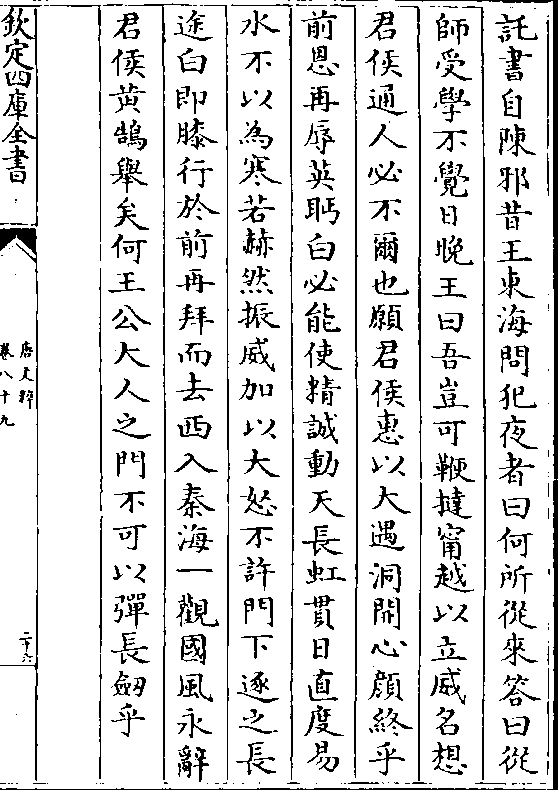 託書自陳邪昔王東海問犯夜者曰何所從來答曰從
師受學不覺日晚王曰吾豈可鞭撻甯越以立威名想
君侯通人必不爾也願君侯惠以大遇洞開心顔終乎
前恩再辱英眄白必能使精誠動天長虹貫日直度易
水不以為寒若赫然振威加以大怒不許門下逐之長
途白即膝行於前再拜而去西入秦海一觀國風永辭
君侯黄鵠舉矣何王公大人之門不可以彈長劒乎
欽定四庫全書
唐文粹
卷八十九
二十六